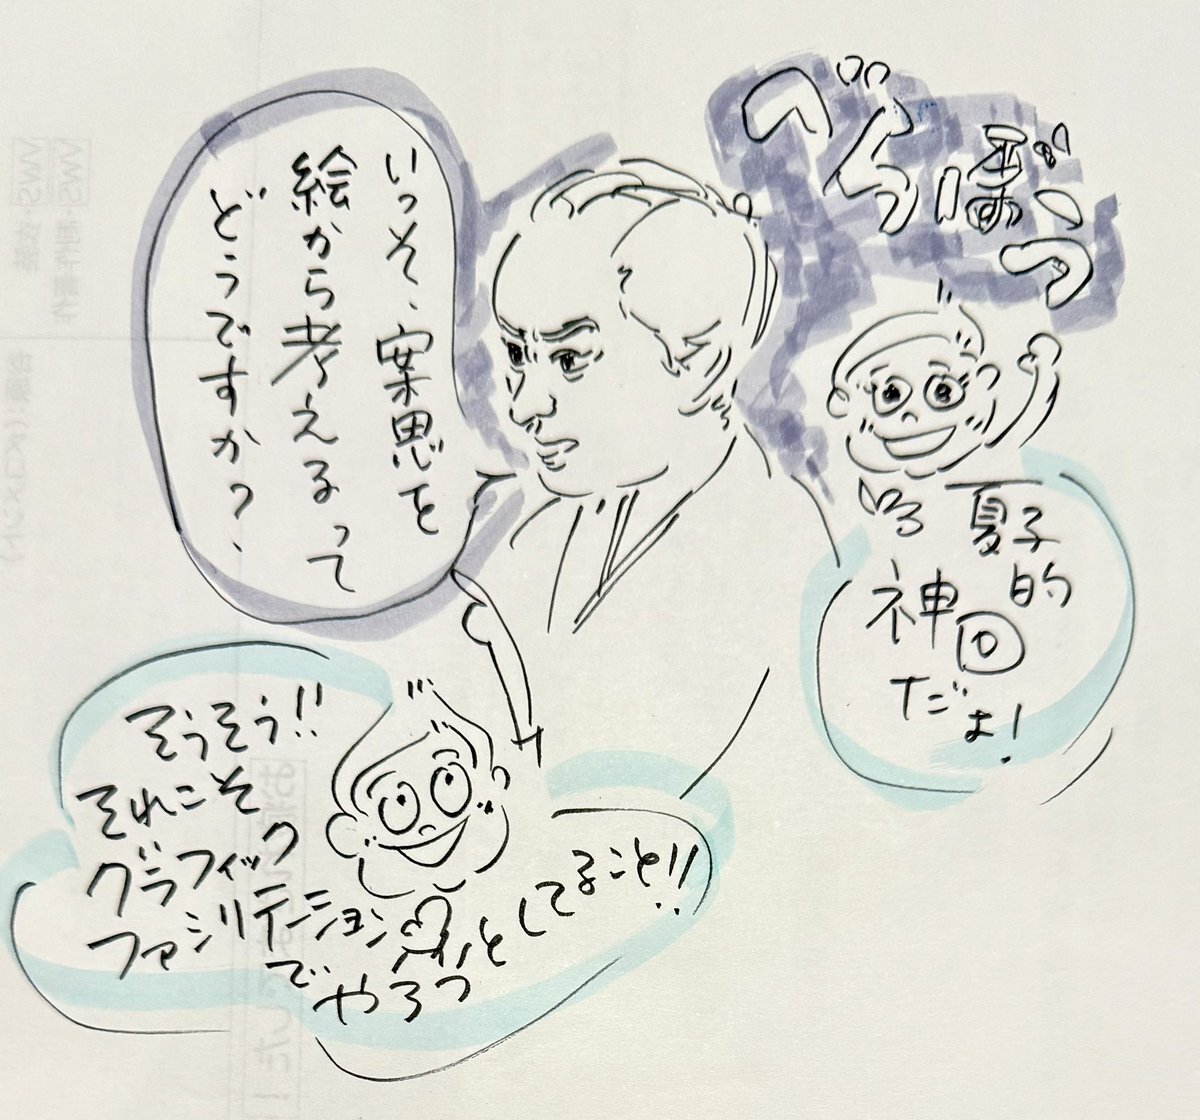 べらぼう
いっそ、案思を
絵から考えるって
どうですか?
夏子
的
神回
だよ!
そうそう!!
それこそ
グラフィック
ファシリテーション
で
やろうとしてること!!